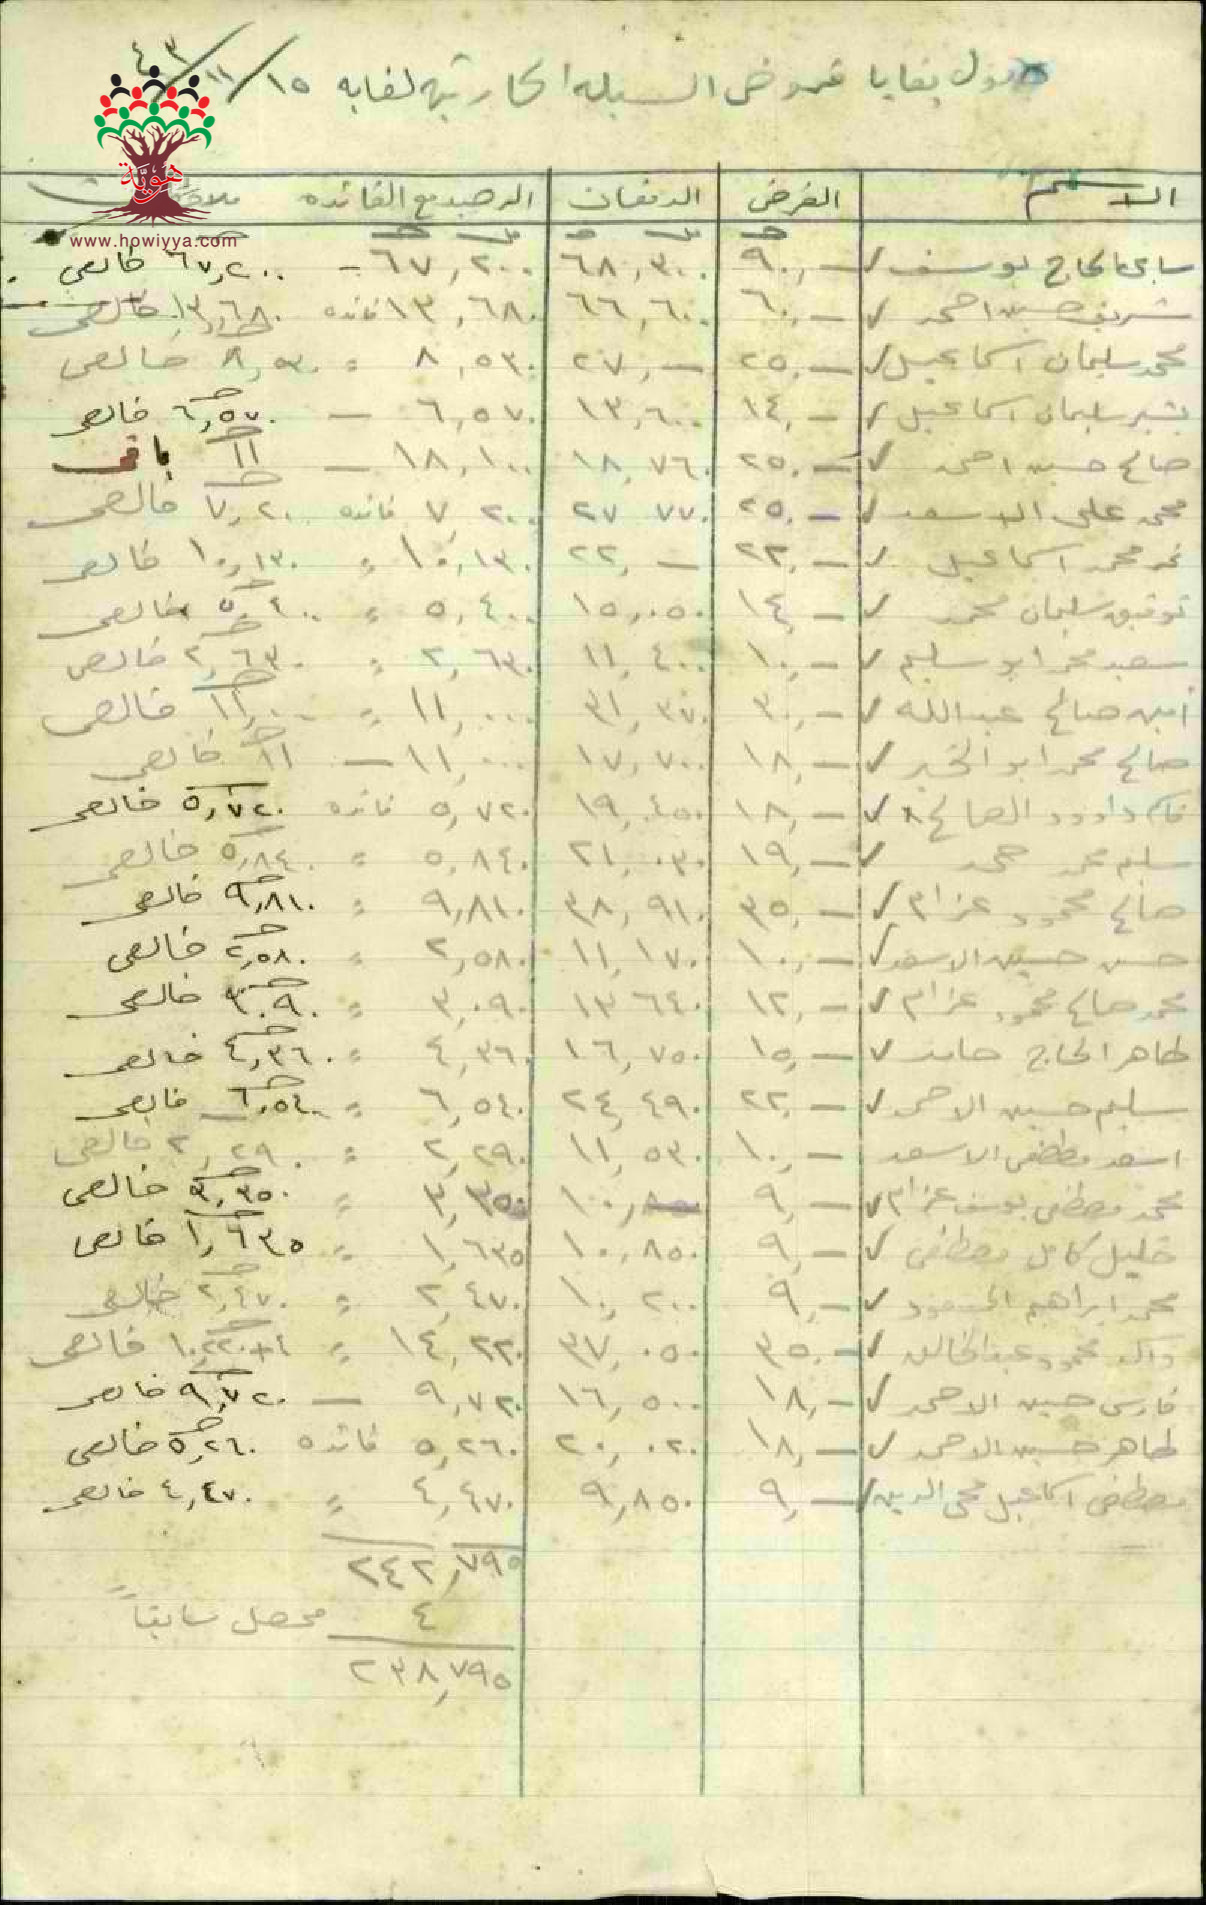 جدول بقايا قروض السيله الحارثيه لغايه ١٥/١١/٤٣
هوية
www.howiyya.com
الاسم القرض الدفعات الرصيد مع الفائده ملاحظات
الحاج يوسف ✓ ٩٠,— ٦٨,٣٠٠ ٦٧,٢٠٠ — ٦٧,٢٠٠ خالص
شريف حسين احمد ✓ ٦٠,— ٦٦,٦٠٠ ١٣,٦٨٠ فائده ١٣,٦٨٠ خالص
محمد سليمان اسماعيل ✓ ٢٥,— ٢٧,— ٨,٥٣٠ " ٨,٥٣٠ خالص
بشير سليمان اسماعيل ✓ ١٤,— ١٣,٦٠٠ ٦,٥٧٠ — ٦,٥٧٠ خالص
صالح حسين احمد ✓ ٢٥,— ١٨,٧٦٠ ١٨,١٠٠ — ١١ باقي
محمد علي الاسعد ✓ ٢٥,— ٢٧,٧٧٠ ٧,٢٠٠ فائده ٧,٢٠٠ خالص
نمر محمد اسماعيل ✓ ٢٢,— ٢٢,— ١٠,١٣٠ " ١٠,١٣٠ خالص
توفيق سليمان محمد ✓ ١٤,— ١٥,٠٥٠ ٥,٤٠٠ " ٥,٤٠٠ خالص
سعيد محمد ابو سليم ✓ ١٠,— ١١,٤٠٠ ٢,٦٣٠ " ٢,٦٣٠ خالص
امين صالح عبدالله ✓ ٣٠,— ٣١,٣٧٠ ١١,٠٠٠ " ١١,٠٠٠ خالص
صالح محمد ابو الخير ✓ ١٨,— ١٧,٧٠٠ ١١,٠٠٠ — ١١ خالص
داوود الصالح ✓ ١٨,— ١٩,٤٥٠ ٥,٧٢٠ فائده ٥,٧٢٠ خالص
سليم محمد حمد ✓ ١٩,— ٢١,٠٣٠ ٥,٨٤٠ " ٥,٨٤٠ خالص
صالح محمود عزام ✓ ٣٥,— ٣٨,٩١٠ ٩,٨١٠ " ٩,٨١٠ خالص
حسن حسين الاسعد ✓ ١٠,— ١١,١٧٠ ٢,٥٨٠ " ٢,٥٨٠ خالص
محمد صالح محمود عزام ✓ ١٢,— ١٣,٦٤٠ ٣,٠٩٠ " ٣,٠٩٠ خالص
طاهر الحاج حامد ✓ ١٥,— ١٦,٧٥٠ ٤,٣٦٠ " ٤,٣٦٠ خالص
سليم حسين الاحمد ✓ ٢٢,— ٢٤,٤٩٠ ٦,٥٤٠ " ٦,٥٤٠ خالص
اسعد مصطفى الاسعد ١٠,— ١١,٥٣٠ ٢,٢٩٠ " ٢,٢٩٠ خالص
محمد مصطفى يوسف عزام ✓ ٩,— ٣,٣٥٠ " ٣,٣٥٠ خالص
خليل كامل مصطفى ✓ ٩,— ١٠,٨٥٠ ١,٦٣٥ " ١,٦٣٥ خالص
محمد ابراهيم المسعود ✓ ٩,— ١٠,٢٠٠ ٢,٤٧٠ " ٢,٤٧٠ خالص
محمود عبدالخالق ✓ ٣٥,— ٣٧,٠٥٠ ١٤,٢٢٠ " ٤+١٠,٢٢٠ خالص
فارس حسين الاحمد ✓ ١٨,— ١٦,٥٠٠ ٩,٧٢٠ — ٩,٧٢٠ خالص
طاهر حسين الاحمد ✓ ١٨,— ٢٠,٠٢٠ ٥,٢٦٠ فائده ٥,٢٦٠ خالص
مصطفى اسماعيل محي الدين ✓ ٩,— ٩,٨٥٠ ٤,٤٧٠ " ٤,٤٧٠ خالص
٢٤٢,٧٩٥
٤ محصل سابقاً
٢٣٨,٧٩٥